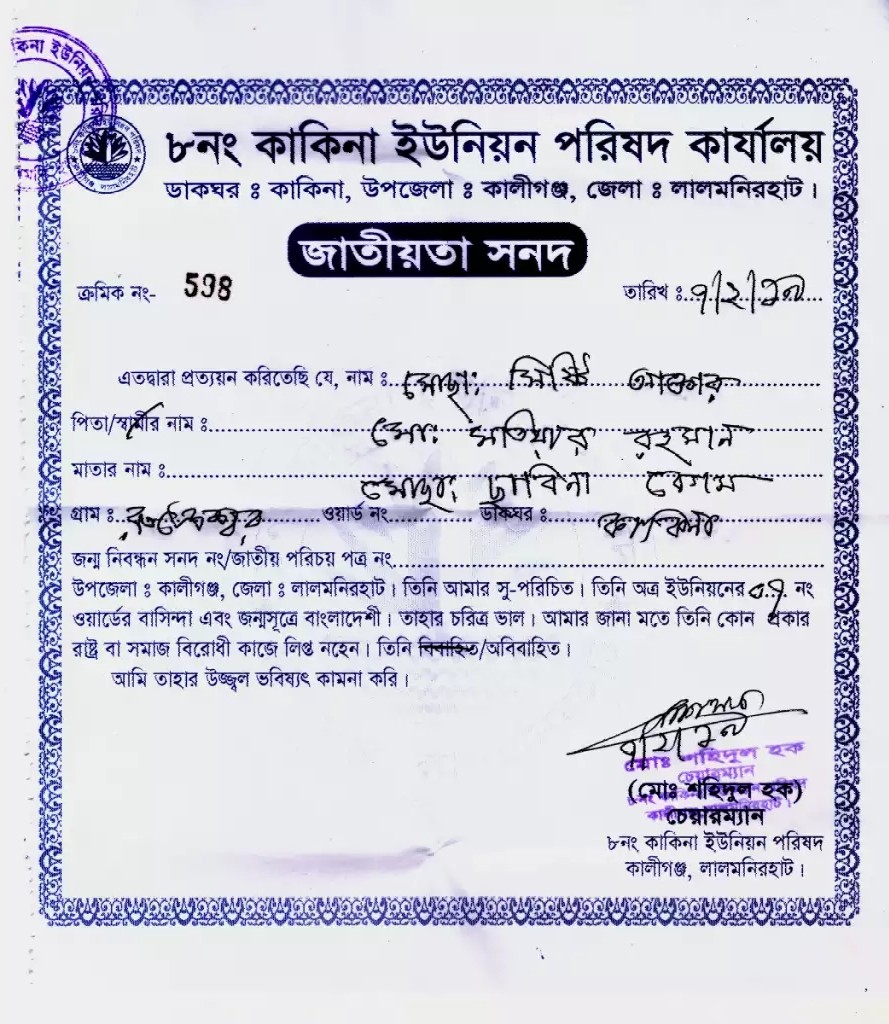 ৮নং কাকিনা ইউনিয়ন পরিষদ কার্যালয়
ডাকঘর ঃ কাকিনা, উপজেলা ঃ কালীগঞ্জ, জেলা ঃ লালমনিরহাট।
জাতীয়তা সনদ
ক্রমিক নং- 598 তারিখ ঃ
এতদ্বারা প্রত্যয়ন করিতেছি যে, নাম ঃ মোছা: আক্তার
পিতা/স্বামীর নাম ঃ মো: মতিয়ার রহমান
মাতার নাম ঃ বেগম
গ্রাম ঃ ওয়ার্ড নং ডাকঘর ঃ কাকিনা
জন্ম নিবন্ধন সনদ নং/জাতীয় পরিচয় পত্র নং
উপজেলা ঃ কালীগঞ্জ, জেলা ঃ লালমনিরহাট। তিনি আমার সু-পরিচিত। তিনি অত্র ইউনিয়নের নং
ওয়ার্ডের বাসিন্দা এবং জন্মসূত্রে বাংলাদেশী। তাহার চরিত্র ভাল। আমার জানা মতে তিনি কোন প্রকার
রাষ্ট্র বা সমাজ বিরোধী কাজে লিপ্ত নহেন। তিনি বিবাহিত/অবিবাহিত।
আমি তাহার উজ্জ্বল ভবিষ্যৎ কামনা করি।
মোঃ শহিদুল হক
চেয়ারম্যান
(মোঃ শহিদুল হক)
চেয়ারম্যান
৮নং কাকিনা ইউনিয়ন পরিষদ
কালীগঞ্জ, লালমনিরহাট।